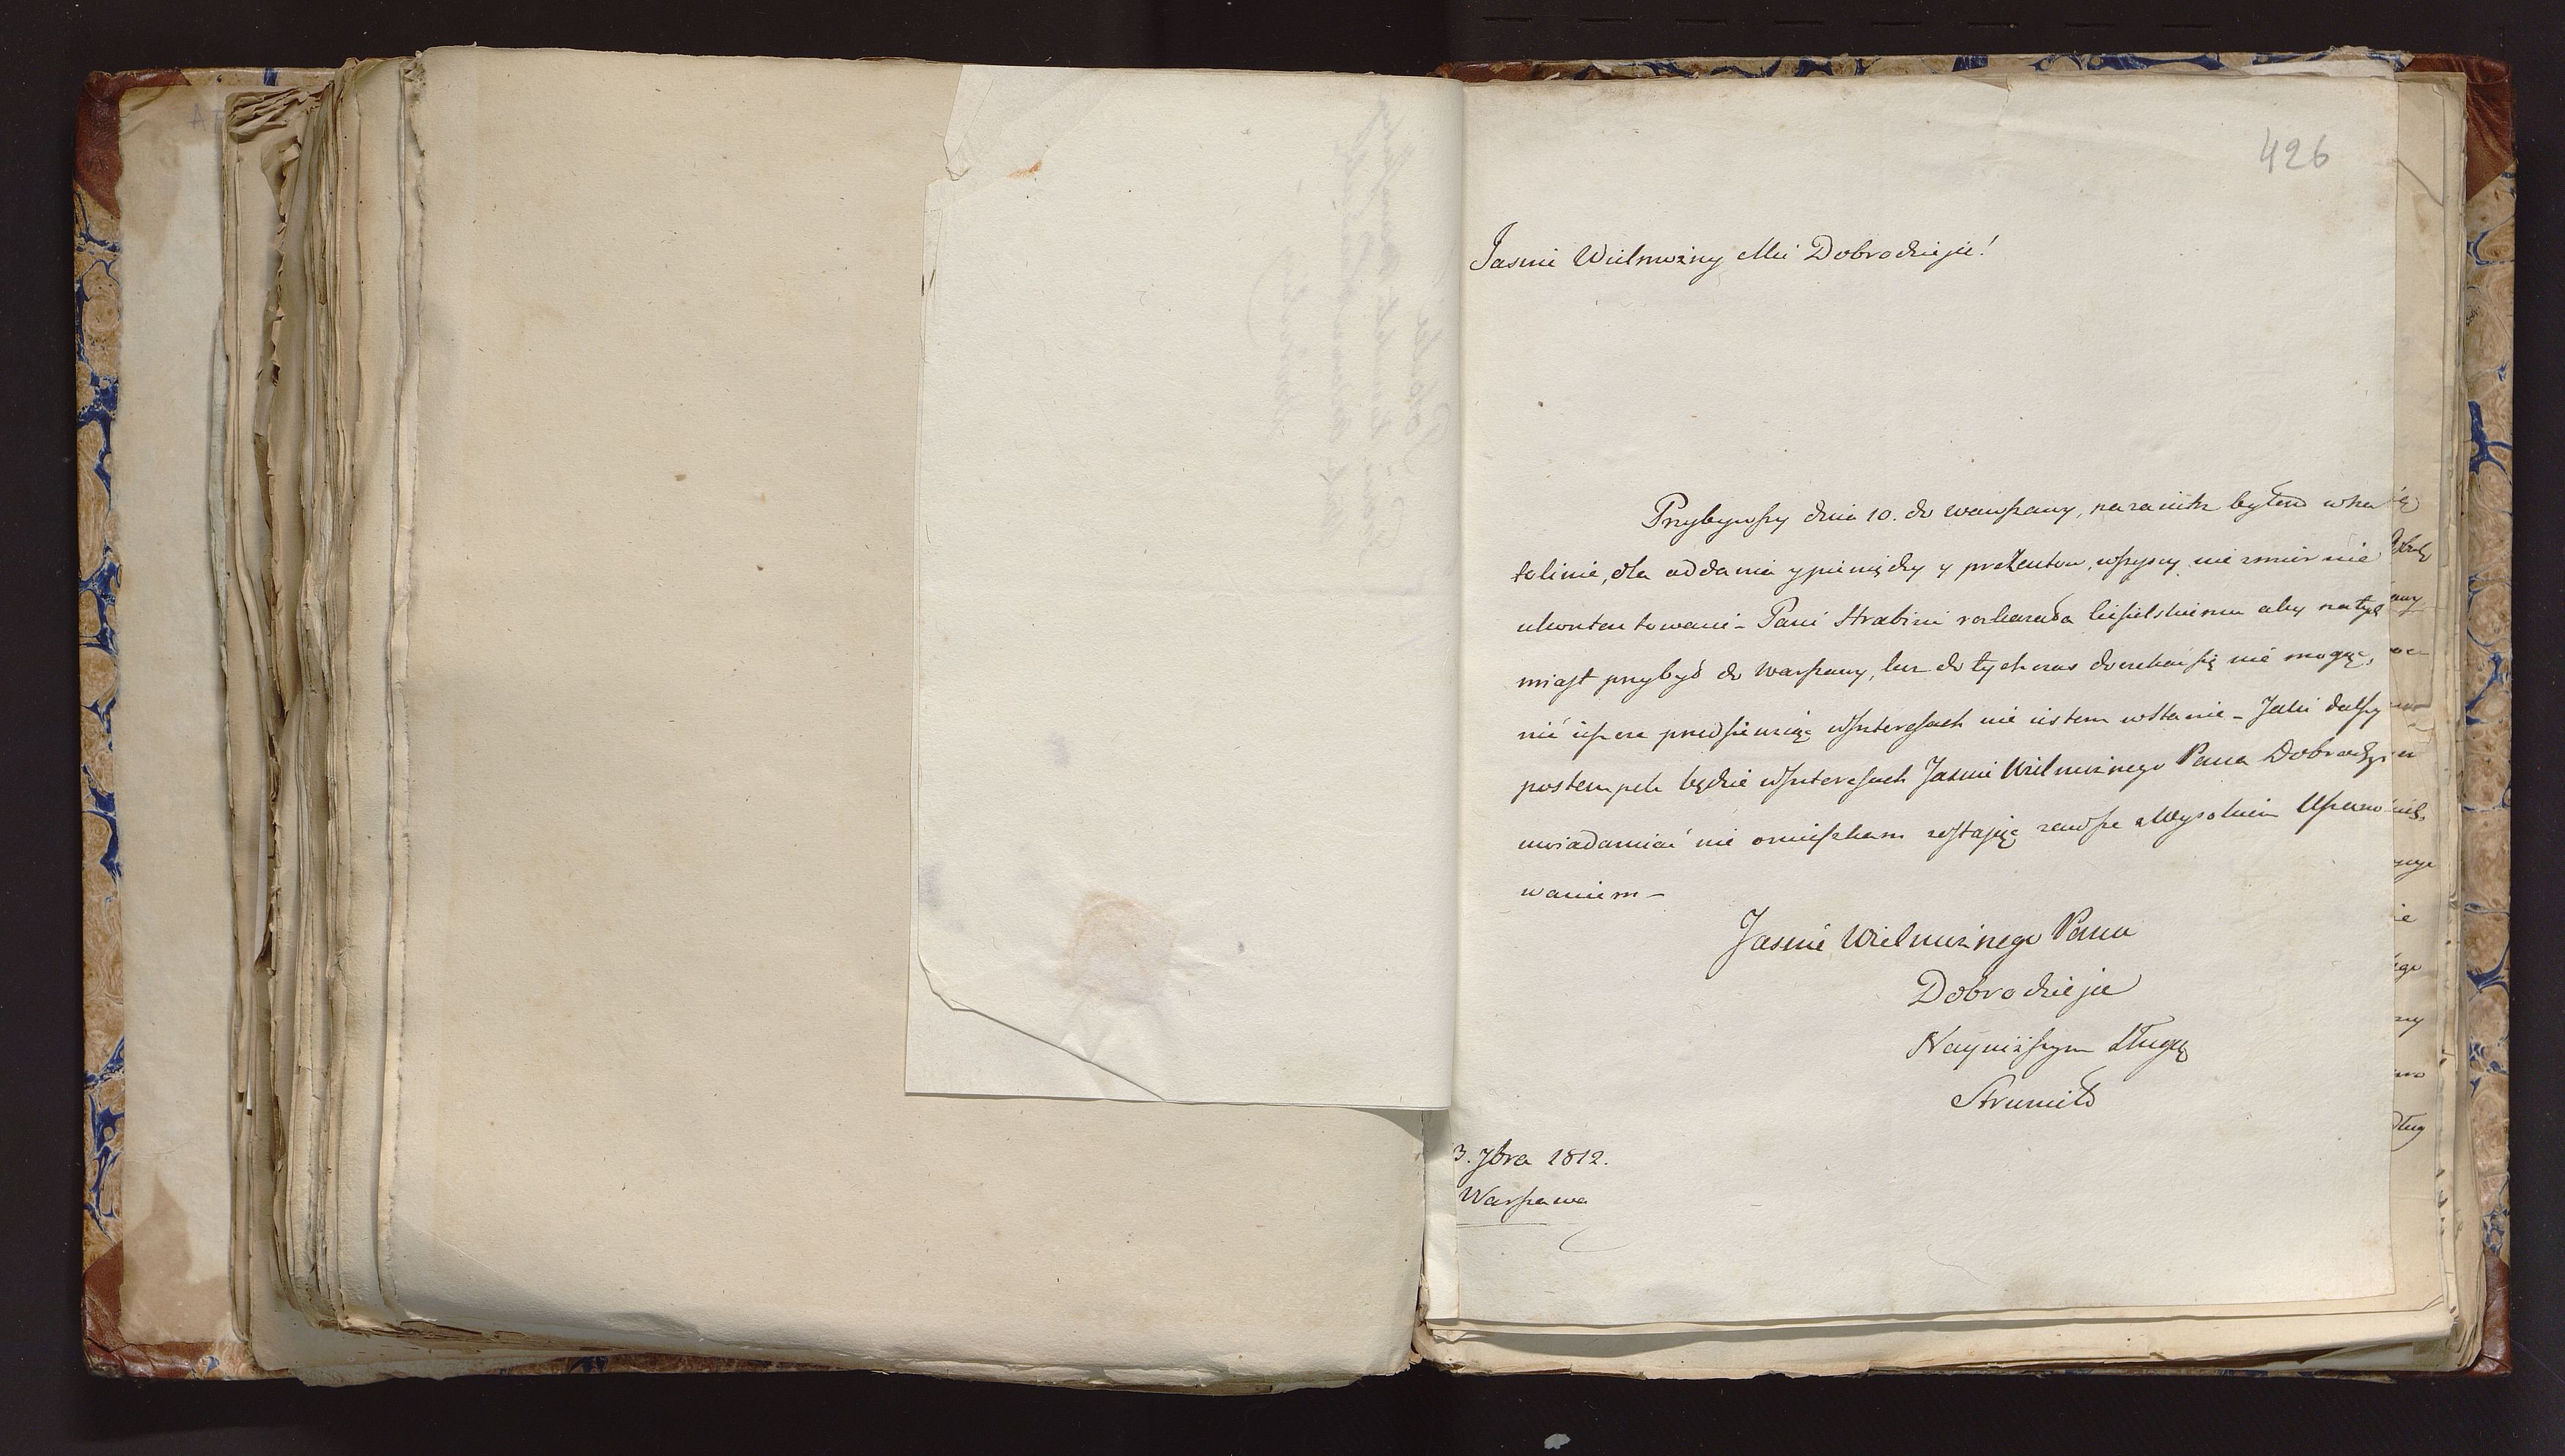 426
Jasnie Wielmożny Mci Dobrodzieju!
Przybywszy dnia 10. do Warszawy, nazaiutrz byłem wNa
tolinie, dla oddania y pieniędzy y prezentow, wszyscy nie zmiernie
ukontentowani – Pani Hrabini rozkazała aby natych
miast przybył do Warszawy, lecz do tych czas doczekać się nie mogę,
nic ieszcze przedsiewziąć wInteresach nie iestem wstanie – Jaki dalszy
postempek będzie wInteresach Jasnie Wielmożnego Pana Dobrodzieja
uwiadamiać nie omieszkam zostając zawsze z Wysokim Uszano
waniem –
Jasnie Wielmożnego Pana
Dobrodzieja
Nayniższym Sługą
Strumiłło
3. 7bra 1812.
Warszawa